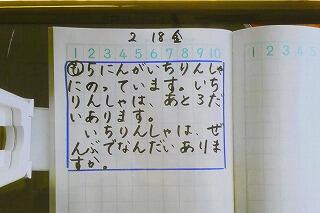 2 18 金
1 2 3 4 5 6 7 8 9 10
1 2 3 4 5
も 5にんがいちりんしゃ
にのっています。いち
りんしゃは、あと3だ
いあります。
いちりんしゃは、ぜ
んぶでなんだいありま
すか。